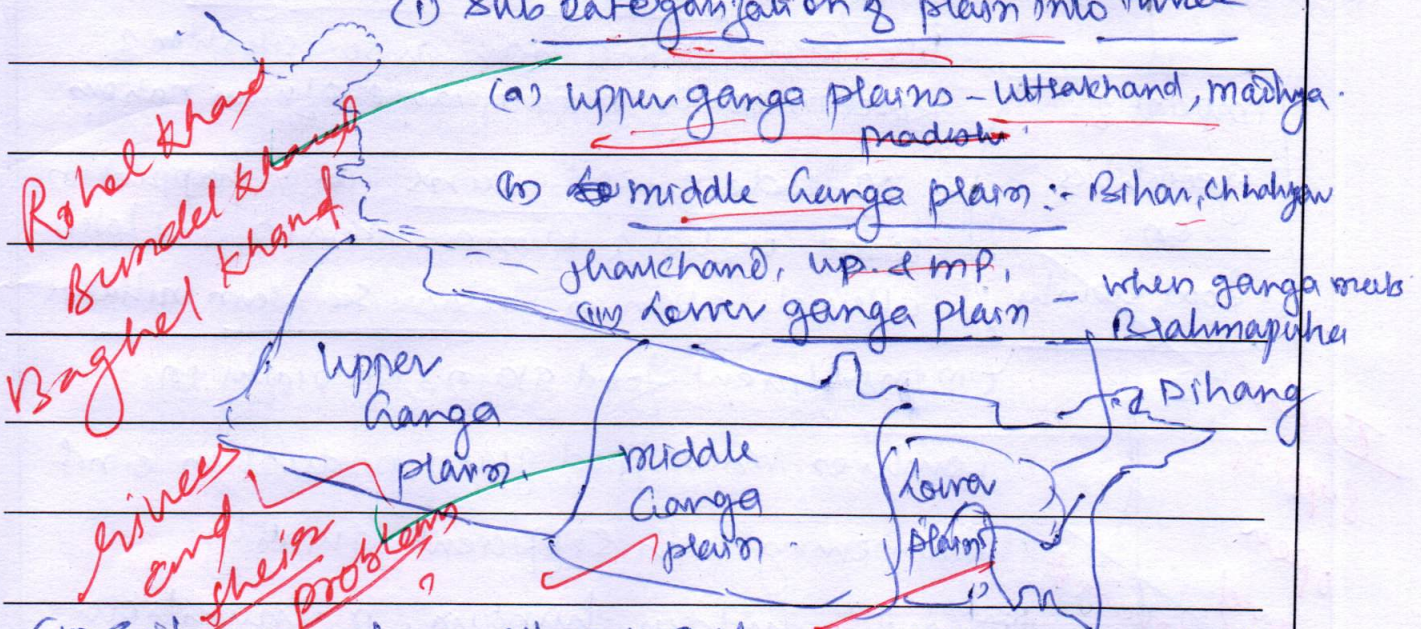 (1) Sub categorization of plain into three
(a) Upper ganga plains - Uttrakhand, madhya
pradesh
(b) middle Ganga plain :- Bihar,
Jharkhand, up. & mp,
Lower ganga plain - when ganga meets
Brahmaputra
Rohel khand
Bundel khand
Baghel khand
Upper
Ganga
plain.
middle
Ganga
plain.
Lower
plain
Dihang
rivers
and
their
problems
?